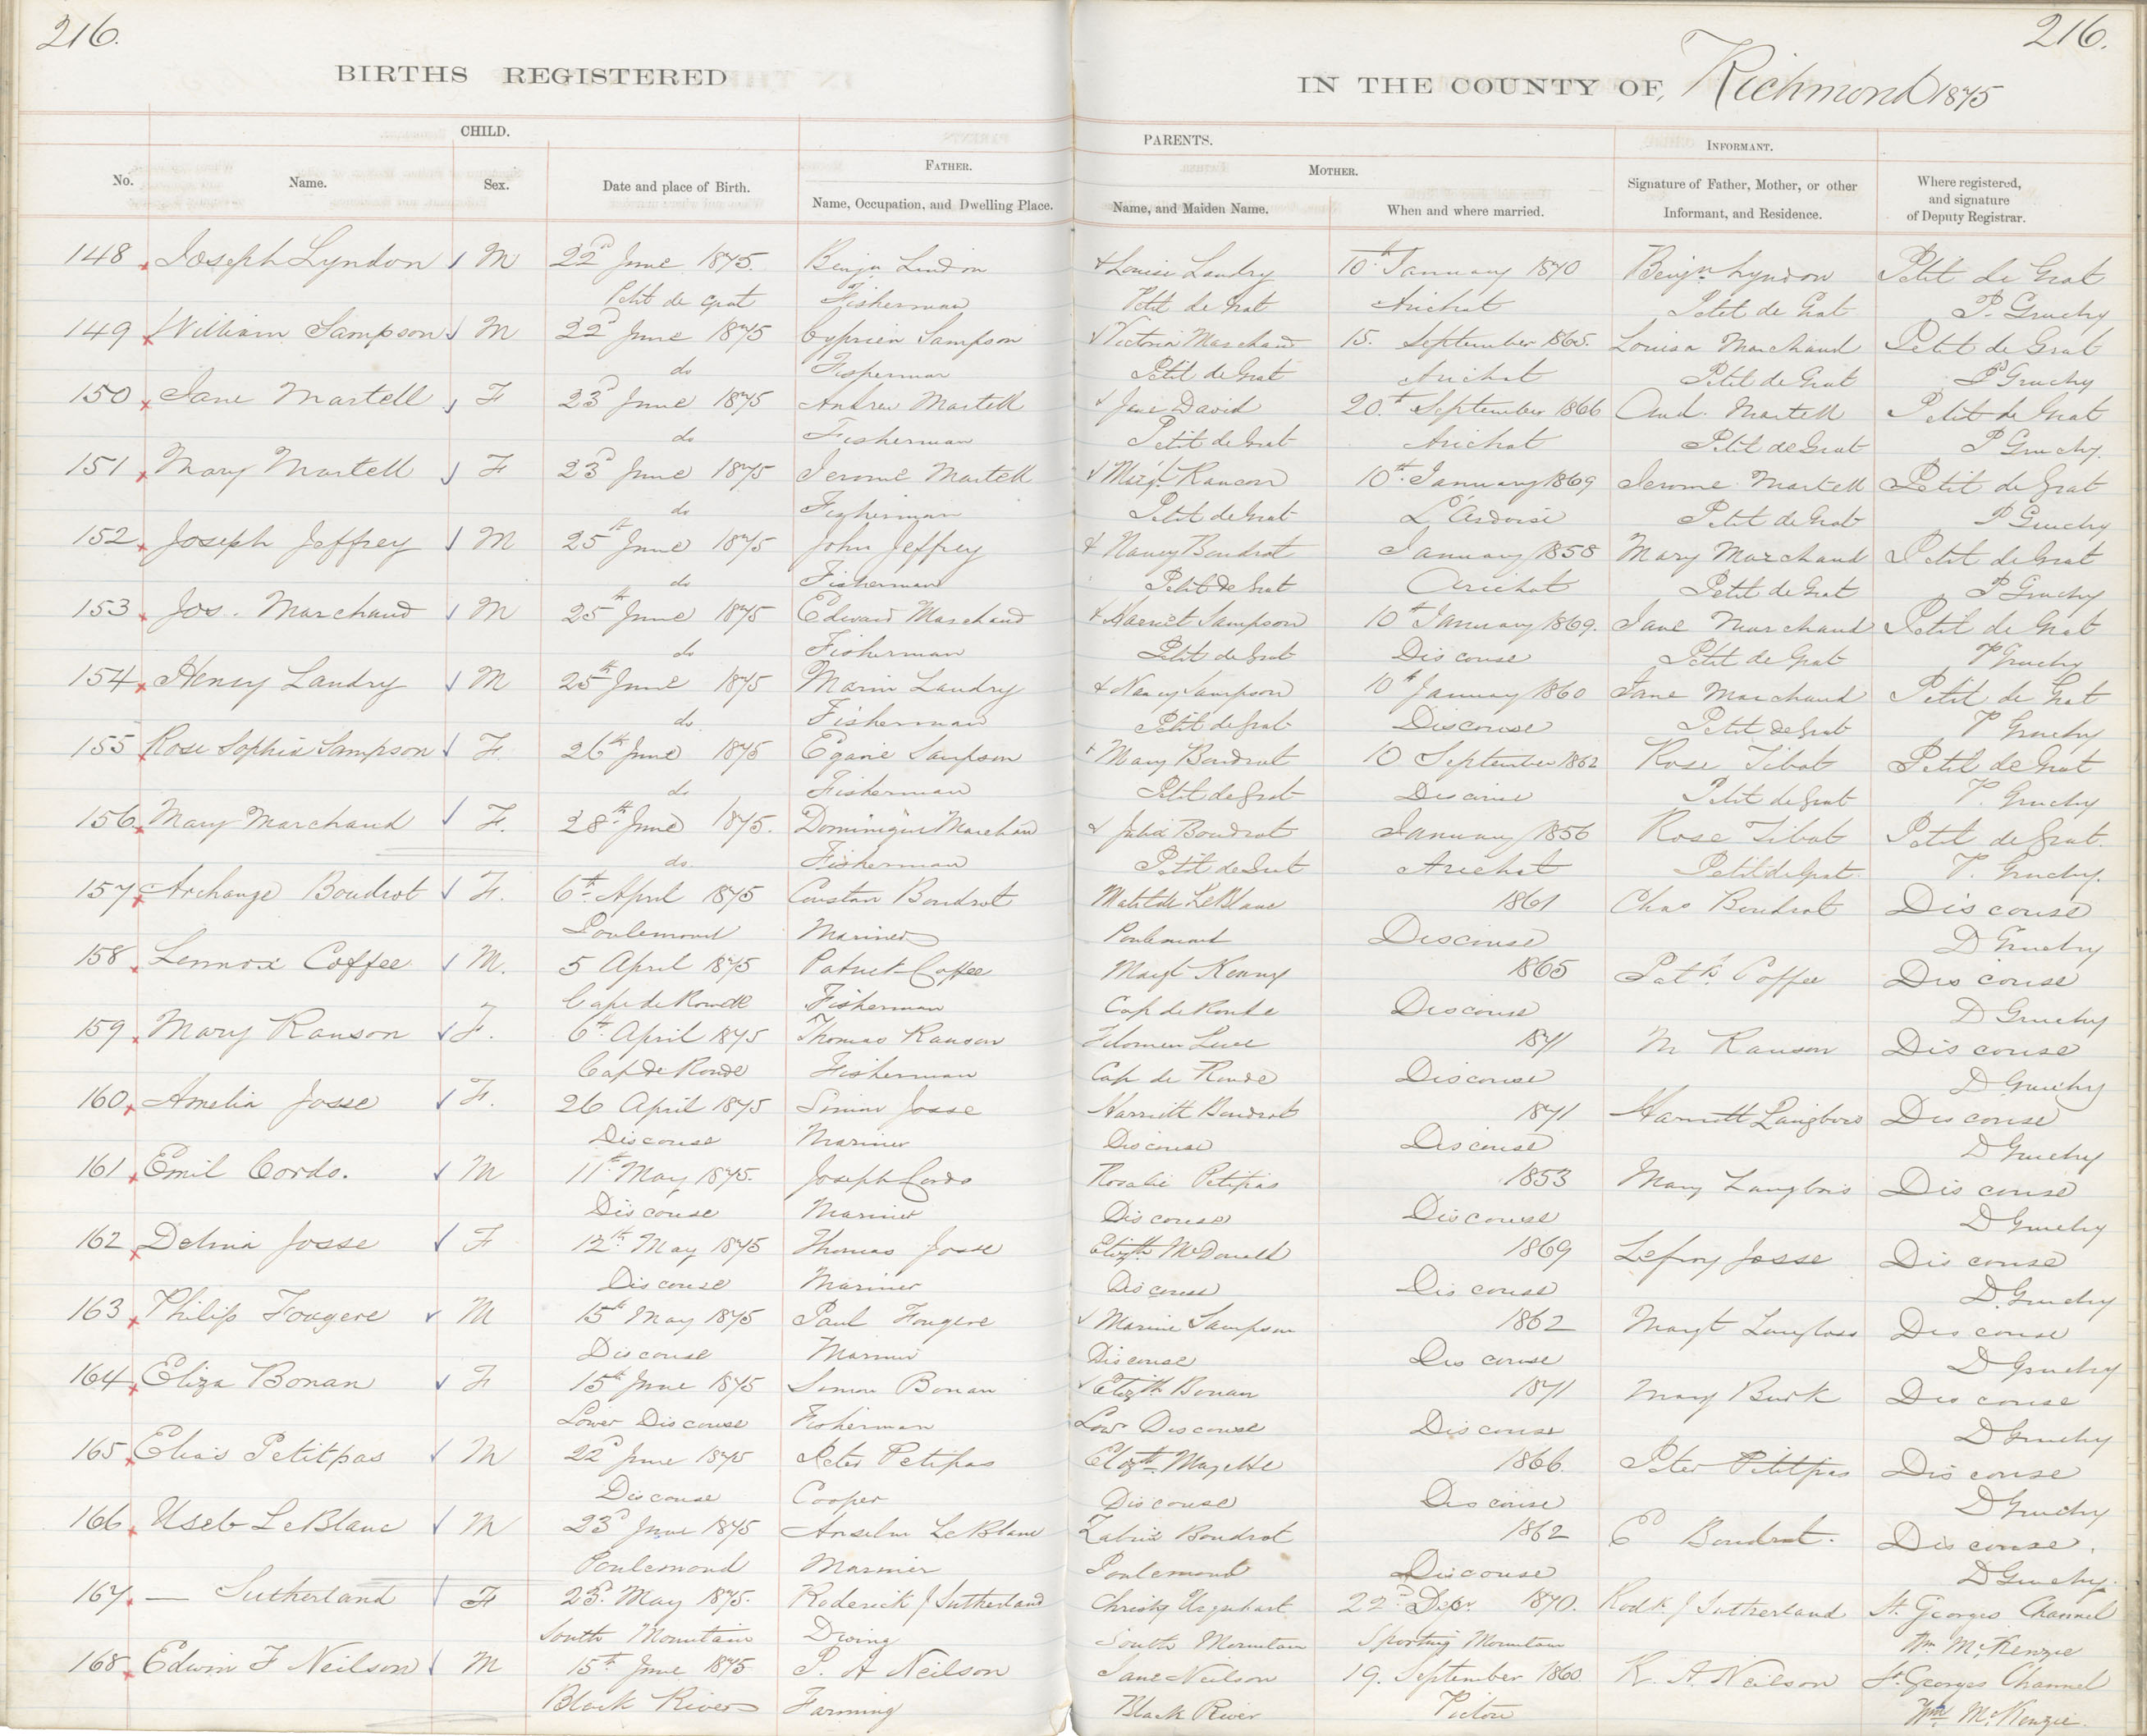 216. 216.
BIRTHS REGISTERED IN THE COUNTY OF, Richmond 1875
CHILD. PARENTS. INFORMANT.
FATHER. MOTHER.
No. Name. Sex. Date and place of Birth. Name, Occupation, and Dwelling Place. Name, and Maiden Name. When and where married. Signature of Father, Mother, or other Informant, and Residence. Where registered, and signature of Deputy Registrar.
148 Joseph Lyndon M 22d June 1875. Benjn Lindon Louisa Landry 10th January 1870 Benjn Lyndon Petit de Grat
Petit de Grat Fisherman Petit de Grat Arichat Petit de Grat P. Gruchy
149 William Sampson M 22d June 1875 Cyprien Sampson Victoria Marchand 15. September 1865. Louisa Marchand Petit de Grat
do Fisherman Petit de Grat Arichat Petit de Grat P Gruchy
150 Jane Martell F 23d June 1875 Andrew Martell Jane David 20th September 1866 And. Martell Petit de Grat
do Fisherman Petit de Grat Arichat Petit de Grat P Gruchy.
151 Mary Martell F 23d June 1875 Jerome Martell Margt Rancon 10th January 1869 Jerome Martell Petit de Grat
do Fisherman Petit de Grat L'Ardoise Petit de Grat P Gruchy
152 Joseph Jeffrey M 25th June 1875 John Jeffrey Nancy Boudrot January 1858 Mary Marchand Petit de Grat
do Fisherman Petit de Grat Arichat Petit de Grat P Gruchy
153 Jos. Marchand M 25th June 1875 Edward Marchand Harriet Sampson 10th January 1869. Jane Marchand Petit de Grat
do Fisherman Petit de Grat Discouse Petit de Grat P Gruchy
154 Henry Landry M 25th June 1875 Marin Landry Nancy Sampson 10th January 1860 Jane Marchand Petit de Grat
do Fisherman Petit de Grat Discouse Petit de Grat P Gruchy
155 Rose Sophia Sampson F. 26th June 1875 Sampson Mary Boudrot 10 September 1862 Rose Tibot Petit de Grat
do Fisherman Petit de Grat Discouse Petit de Grat P. Gruchy
156 Mary Marchand F. 28th June 1875. Dominique Marchand Julia Boudrot January 1856 Rose Tibot Petit de Grat.
do. Fisherman Petit de Grat Arichat Petit de Grat P. Gruchy.
157 Archange Boudrot F. 6th April 1875 Constan Boudrot Matilde LeBlanc 1861 Chas Boudrot Discouse
Poulemond Mariner Poulemond Discouse D Gruchy
158 Lennox Coffee M. 5 April 1875 Patrick Coffee Margt Kenny 1865 Patk Coffee Discouse
Cape de Ronde Fisherman Cap de Ronde Discouse D Gruchy
159 Mary Ranson F. 6th April 1875 Thomas Ranson Filomen 1871 M Ranson Discouse
Cap de Ronde Fisherman Cap de Ronde Discouse D Gruchy
160 Amelia Josse F. 26 April 1875 Simon Josse Harriett Boudrot 1871 Harriett Langbois Discouse
Discouse Mariner Discouse Discouse D Gruchy
161 Emil Cordo. M 11th May 1875. Joseph Cordo Rosalie Petipas 1853 Mary Langlois Discouse
Discouse Mariner Discouse Discouse D Gruchy
162 Delina Josse F 12th May 1875 Thomas Josse Elizth McDonell 1869 Lefroy Josse Discouse
Discouse Mariner Discouse Discouse D. Gruchy
163 Philip Fougere M 15th May 1875 Paul Fougere Marine Sampson 1862 Margt Langloss Discouse
Discouse Mariner Discouse Discouse D Gruchy
164 Eliza Bonan F 15th June 1875 Simon Bonan Elizth Bonan 1871 Mary Burk Discouse
Lower Discouse Fisherman Low Discouse Discouse D Gruchy
165 Elias Petitpas M 22d June 1875 Peter Petipas Elizth Mazelle 1866. Peter Petitpas Discouse
Discouse Cooper Discouse Discouse D Gruchy
166 Useb LeBlanc M 23d June 1875 Anselm LeBlanc Zabie Boudrot 1862 E Boudrot. Discouse.
Poulemond Mariner Poulemond Discouse D Gruchy.
167. — Sutherland F 23d May 1875. Roderick J Sutherland Christy Urquhart 22d Decr. 1870. Rodk J Sutherland St. Georges Channel
South Mountain South Mountain Sporting Mountain Wm McKenzie
168 Edwin F Neilson M 15th June 1875 P. A Neilson Jane Neilson 19. September 1860 R. A. Neilson St. Georges Channel
Black River Farming Black River Pictou Wm McKenzie